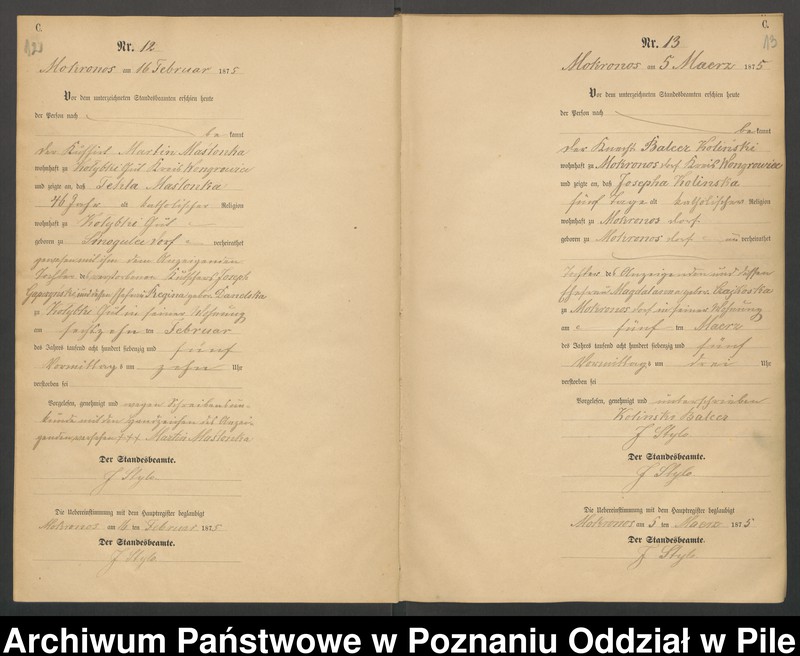 C.
Nr. 12
Mokronos am 16 Februar 1875
Vor dem unterzeichneten Standesbeamten erschien heute
der Person nach
bekannt
der Martin Maslonka
wohnhaft zu Kolybki Gut Kreis Wongrowiec
und zeigte an, daß Tekla Maslonka
76 Jahr alt katholischer Religion
wohnhaft zu Kolybki Gut
geboren zu Smogulec dorf verheirathet
gewesen mit ihm dem Anzeigenden
Tochter des verstorbenen Kutschers Joseph
und dessen Ehefrau Regina geborn Danelska
zu Kolybki Gut in seiner Wohnung
am sechzehn ten Februar
des Jahres tausend acht hundert siebenzig und fünf
Vormittags um zehn Uhr
verstorben sei
Vorgelesen, genehmigt und wegen Schreibensun-
kunde mit den Handzeichen des Anzei-
genden versehen +++ Martin Maslonka
Der Standesbeamte.
J Stylo
Die Uebereinstimmung mit dem Hauptregister beglaubigt
Mokronos am 16 ten Februar 1875
Der Standesbeamte.
J Stylo
C.
13
Nr. 13
Mokronos am 5 Maerz 1875
Vor dem unterzeichneten Standesbeamten erschien heute
der Person nach
bekannt
der Knecht Balcer Kolinski
wohnhaft zu Mokronos dorf Kreis Wongrowiec
und zeigte an, daß Josepha Kolinska
fünf Tage alt katholischer Religion
wohnhaft zu Mokronos dorf
geboren zu Mokronos dorf un verheirathet
Tochter des Anzeigenden und dessen
Ehefrau Magdalena geborn
zu Mokronos dorf in seiner Wohnung
am fünf ten Maerz
des Jahres tausend acht hundert siebenzig und fünf
Vormittags um drei Uhr
verstorben sei
Vorgelesen, genehmigt und unterschrieben
Kolinski Balcer
J Stylo
Der Standesbeamte.
J Stylo
Die Uebereinstimmung mit dem Hauptregister beglaubigt
Mokronos am 5 ten Maerz 1875
Der Standesbeamte.
J Stylo
Archiwum Państwowe w Poznaniu Oddział w Pile